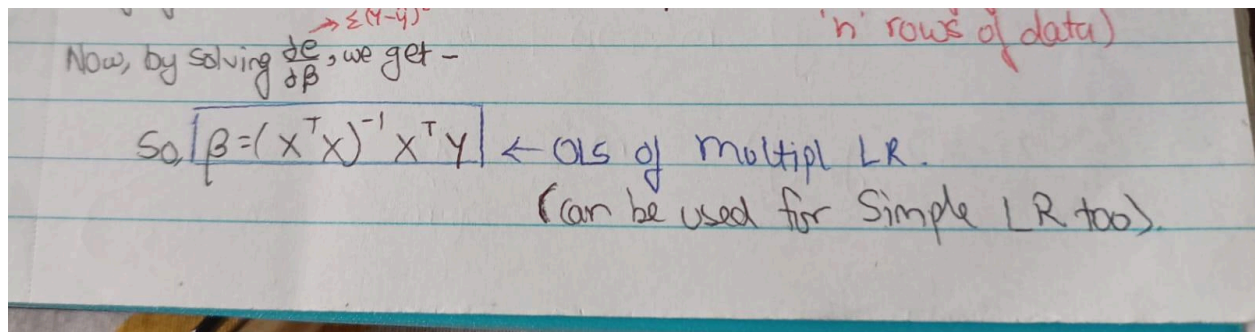 → Σ(Y-ŷ)²
'n' rows of data)
Now, by solving de/dβ, we get -
So, β=(XᵀX)⁻¹XᵀY ← OLS of multipl LR.
(can be used for Simple LR too).